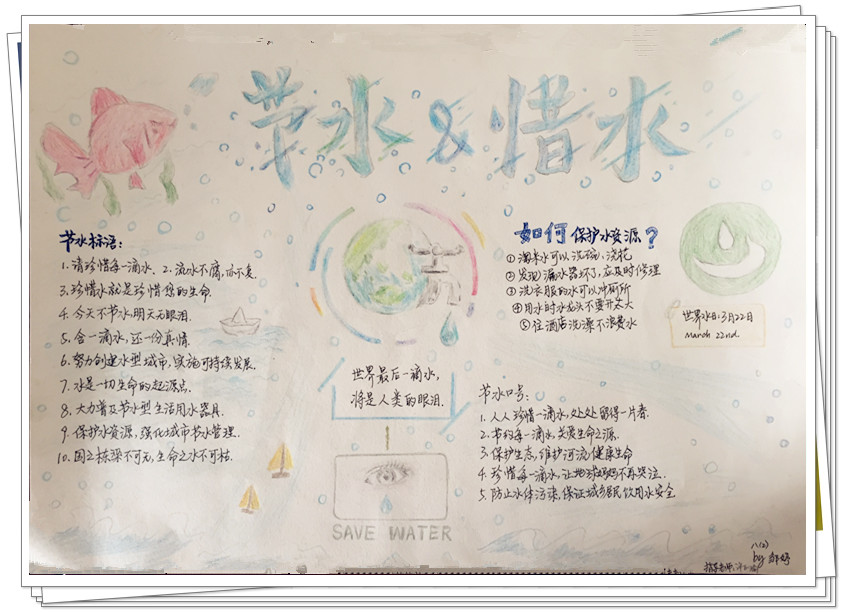 节水&惜水
节水标语:
1. 请珍惜每一滴水. 2. 流水不腐,亦不臭.
3. 珍惜水就是珍惜您的生命.
4. 今天不节水,明天无眼泪.
5. 含一滴水,还一份真情.
6. 努力创建水型城市,实施可持续发展.
7. 水是一切生命的起源点.
8. 大力普及节水型生活用水器具.
9. 保护水资源,强化城市节水管理.
10. 国之栋梁不可无,生命之水不可枯.
世界最后一滴水,
将是人类的眼泪.
SAVE WATER
如何保护水资源?
①淘米水可以洗碗,浇花
②发现漏水器坏了,应及时修理
③洗衣服的水可以冲厕所
④用水时水龙头不要开太大
⑤住酒店洗澡不浪费水
世界水日:3月22日
March 22nd
节水口号:
1. 人人珍惜一滴水,处处留得一片春.
2. 节约每一滴水,关爱生命之源.
3. 保护生态,维护河流健康生命
4. 珍惜每一滴水,让地球妈妈不再哭泣.
5. 防止水体污染,保证城乡居民饮用水安全
八(2)
by
指导老师: